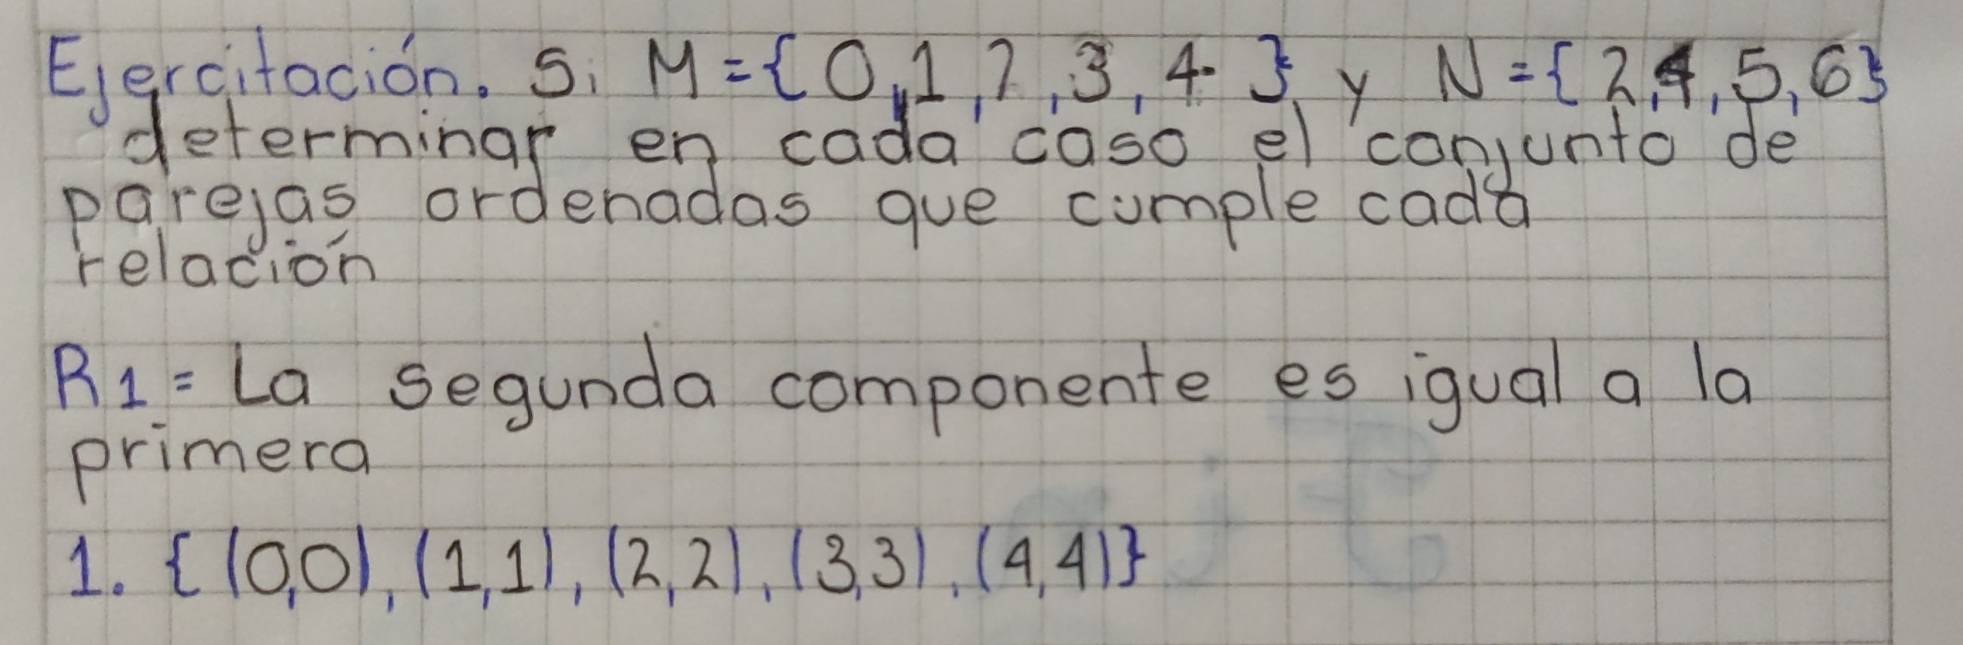 Ejercitación. Si M = { 0, 1, 2, 3, 4 } y N = { 2, 4, 5, 6 }
determinar en cada caso el conjunto de
parejas ordenadas que cumple cada
relación
R1 = La segunda componente es igual a la
primera
1. { (0,0), (1,1), (2,2), (3,3), (4,4) }